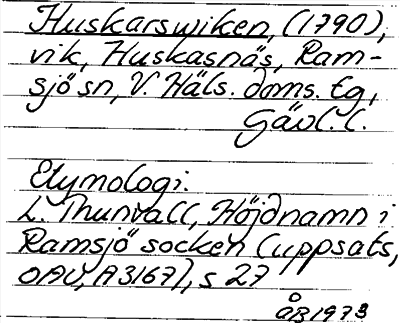 Huskarswiken, (1790),
vik, Huskasnäs, Ram-
sjö sn, V. Häls. doms. tg,
Gävl. l.
Etymologi.
L. Thunvall, Höjdnamn i
Ramsjö socken (uppsats,
OAU, A3167), s 27
ÅB 1973